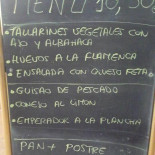 MENU 10,50
• TALLARINES VEGETALES CON
AJO Y ALBAHACA
• HUEVOS A LA FLAMENCA
• ENSALADA CON QUESO FETA
• GUISAO DE PESCADO
• CONEJO AL LIMON
• EMPERADOR A LA PLANCHA
PAN + POSTRE